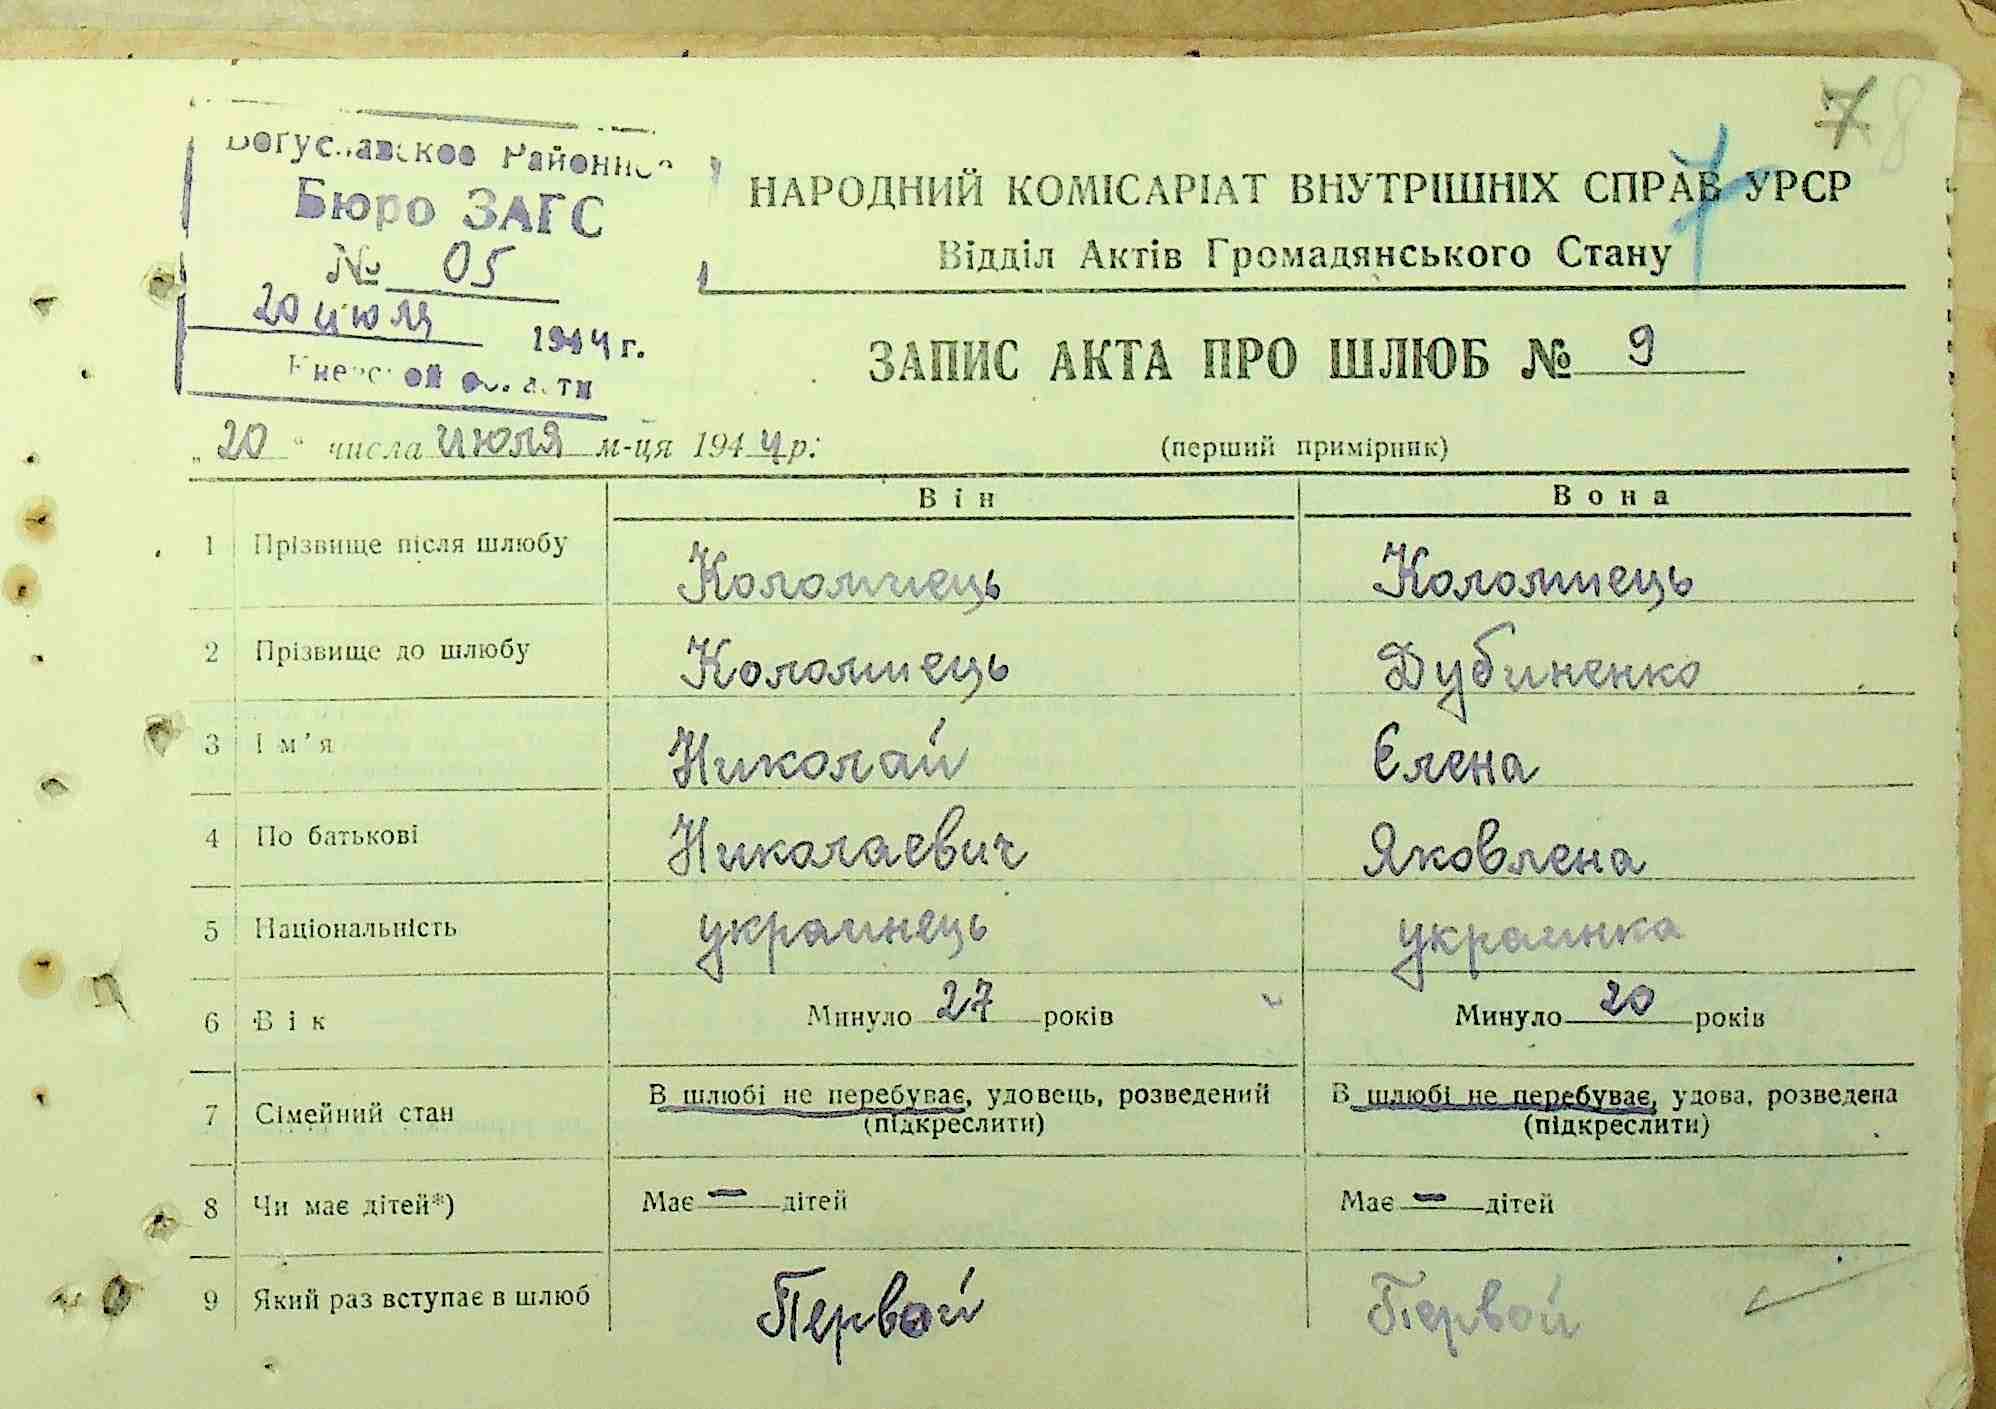 7 8
7
Богуславское Районное
Бюро ЗАГС
№ 05
20 июля 1944 г.
Киевской области
НАРОДНИЙ КОМІСАРІАТ ВНУТРІШНІХ СПРАВ УРСР
Відділ Актів Громадянського Стану
ЗАПИС АКТА ПРО ШЛЮБ № 9
„20“ числа июля м-ця 1944 р.
(перший примірник)
Він Вона
1 Прізвище після шлюбу Коломиець Коломиець
2 Прізвище до шлюбу Коломиець Дубиненко
3 Ім’я Николай Елена
4 По батькові Николаевич Яковлена
5 Національність украинець украинка
6 Вік Минуло 27 років Минуло 20 років
7 Сімейний стан В шлюбі не перебуває, удовець, розведений В шлюбі не перебуває, удова, розведена
(підкреслити) (підкреслити)
8 Чи має дітей*) Має — дітей Має — дітей
9 Який раз вступає в шлюб Первой Первой